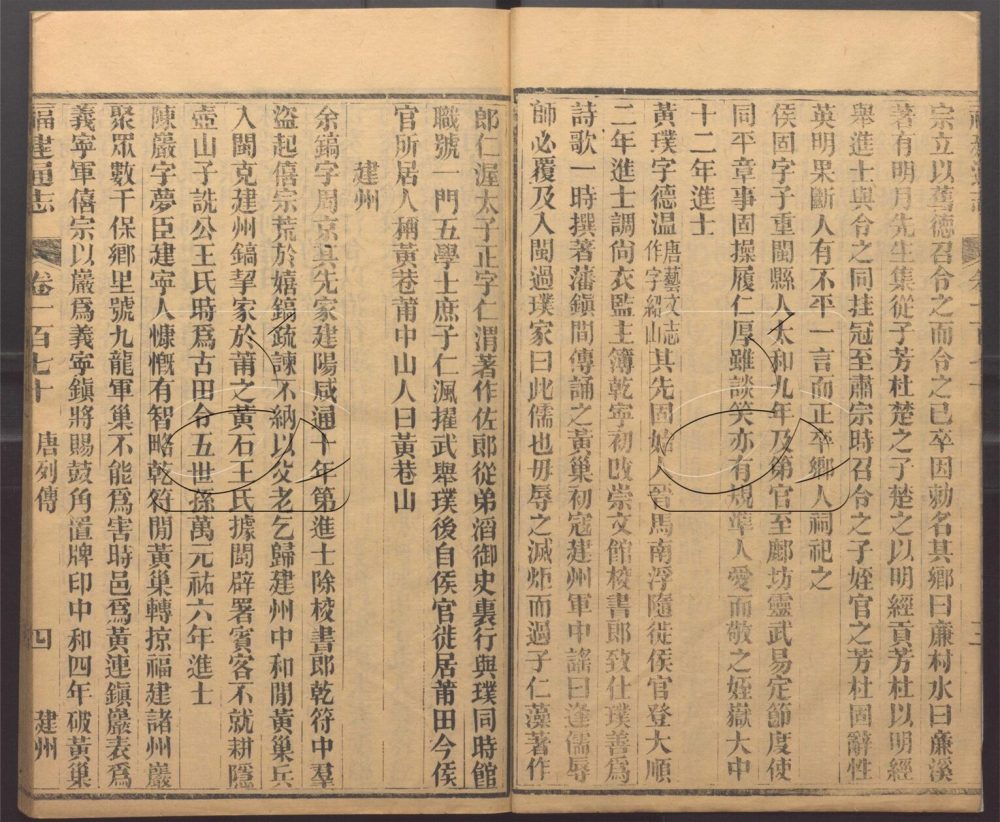 宗立以舊德召令之而令之已卒因勅名其鄉曰亷村水曰亷溪
著有明月先生集從子芳杜楚之子楚之以明經貢芳杜以明經
舉進士與令之同挂冠至肅宗時召令之子姪官之芳杜固辭性
英明果斷人有不平一言而正卒鄉人祠祀之
侯固字子重閩縣人太和九年及第官至鄜坊靈武易定節度使
同平章事固操履仁厚雖談笑亦有規準人愛而敬之姪嶽大中
十二年進士
黃璞字德温唐藝文志作字紹山其先固始人晉馬南浮隨徙侯官登大順
二年進士調尚衣監主簿乾寧初改崇文館校書郎致仕璞善爲
詩歌一時撰著藩鎭間傳誦之黃巢初寇建州軍中謠曰逢儒辱
師必覆及入閩過璞家曰此儒也毋辱之滅炬而過子仁藻著作
郎仁渥太子正字仁渭著作佐郎從弟滔御史裏行與璞同時館
職號一門五學士庶子仁渢擢武舉璞後自侯官徙居莆田今侯
官所居人稱黃巷莆中山人曰黃巷山
建州
余鎬字周京其先家建陽咸通十年第進士除校書郎乾符中羣
盜起僖宗荒於嬉鎬疏諫不納以父老乞歸建州中和閒黃巢兵
入閩克建州鎬挈家於莆之黃石王氏據閩辟署賓客不就耕隱
壺山子詵公王氏時爲古田令五世孫萬元祐六年進士
陳巖字夢臣建寧人慷慨有智略乾符閒黃巢轉掠福建諸州巖
聚眾數千保鄉里號九龍軍巢不能爲害時邑爲黃連鎭巖表爲
義寧軍僖宗以巖爲義寧鎭將賜鼓角置牌印中和四年破黃巢
福建通志 卷一百七十 唐列傳 四 建州